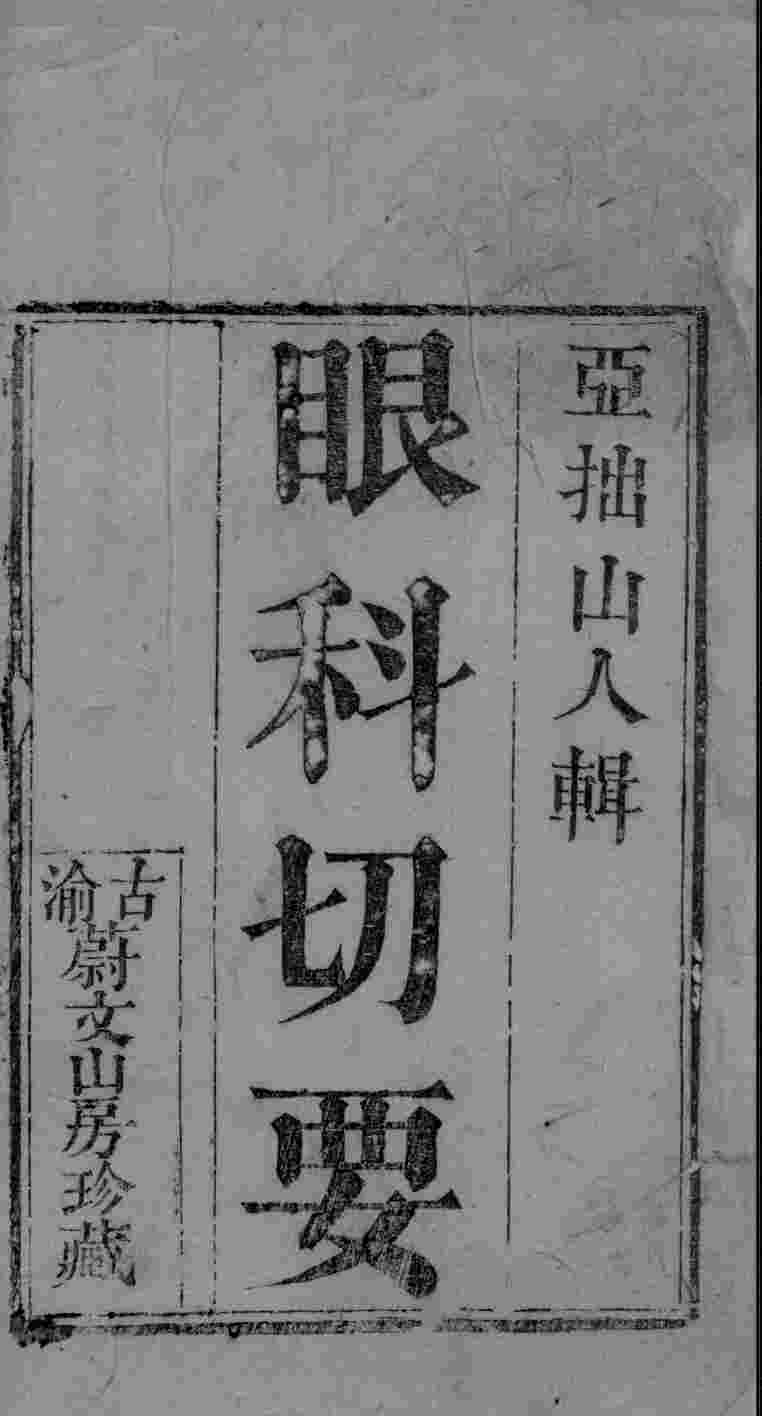 亞拙山人輯
眼科切要
古渝
蔚文山房珍藏